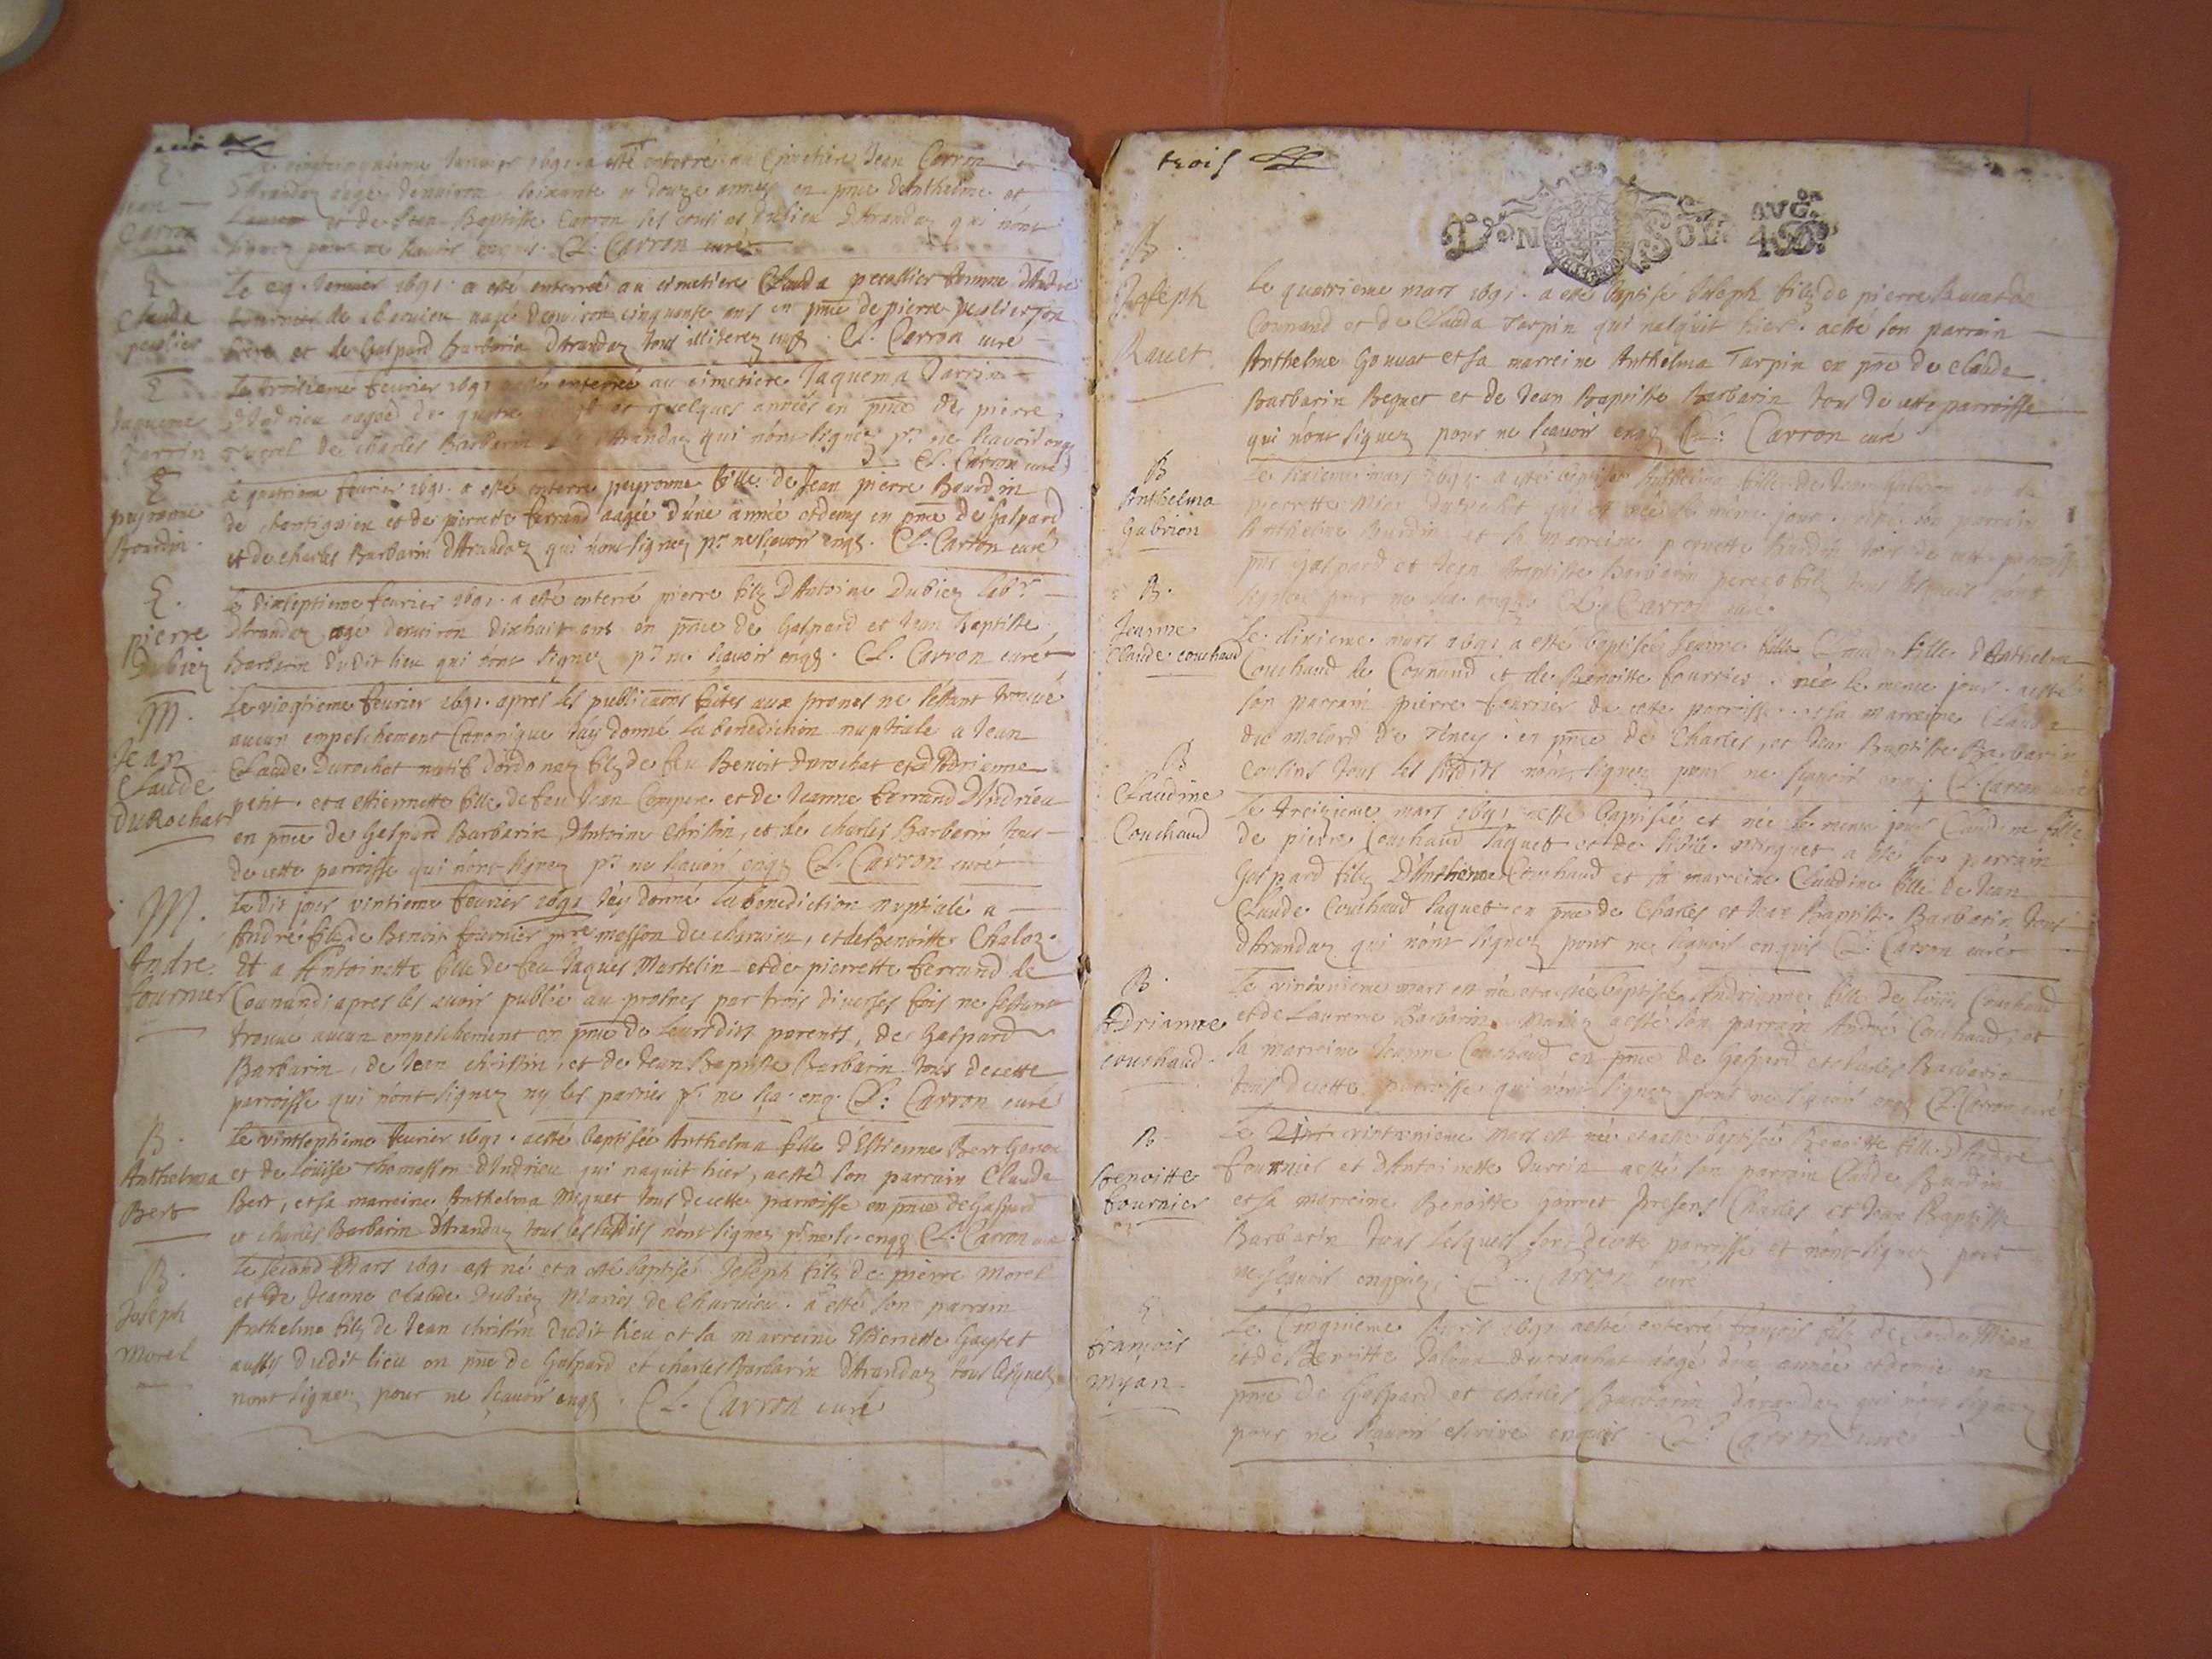 E.
Jean
Carron
Le vingtcinquieme Janvier 1691. a esté enterré au Cimetiere Jean Carron
d'Arandaz aagé denviron soixante et douze années en pnce d'Anthelme et
et de Jean Baptiste Carron ses cousins dudieu d'Arandaz qui n'ont
signez pour ne scavoir enqs. Cl. Carron curé
E
Clauda
pecolier
Le 29. Janvier 1691. a esté enterreé au cimetiere Clauda pecollier femme d'André
fournier de charvieu aagé denviron cinquante ans en pnce de pierre pecolier son
frere et de Gaspard Barbarin d'Arandaz tous illiterez enqs. Cl. Carron curé
E
Jaqueme
Darrin
Le troisieme fevrier 1691 a esté enterreé au cimetiere Jaquema Darrin
d'Indrieu aageé de quatre et quelques années en pnce de pierre
morel de charles Barbarin d'Arandaz qui n'ont signéz pr. ne scavoir enqs
Cl. Carron curé
E
peyronne
Bourdin.
Le quatrieme fevrier 1691. a esté enterre peyronne fille de Jean pierre Bourdin
de chantignieu et de pierrette ferrand aagée d'une année et demy en pnce de Gaspard
et de Charles Barbarin d'Arandaz qui n'ont signez pr. ne scavoir enqs. Cl. Carron curé
E.
pierre
Dubiez
Le dixseptieme fevrier 1691. a esté enterré pierre filz d'Antoine Dubiez labr.
d'Arandaz agé denviron dixhuit ans en pnce de Gaspard et Jean Baptiste
Barbarin dudit lieu qui n'ont signez pr. ne scavoir enqs. Cl. Carron curé
M.
Jean
Claude
Durochat
Le vingtieme fevrier 1691. apres les publicaons faites aux prones ne s'estant trouvé
aucun empeschement Canonique J'ay donné la benediction nuptiale a Jean
Claude Durochat natif dordonaz filz de feu Benoit durochat et d'Adrienne
petit. et a estiennette fille de feu Jean Compere et de Jeanne ferrand d'Indrieu
en pnce de Gaspard Barbarin, d'Antoine Christin, et de charles Barbarin tous
de cette parroisse qui n'ont signez pr. ne scavoir enqs Cl. Carron curé
M.
Andre
fournier
Le dit jour vintieme fevrier 1691 J'ay donné la benediction nuptiale a
André filz de Benoit fournier mre masson de charvieu, et de Benoitte Chaloz.
Et a Antoinette fille de feu Jaques Martelin et de pierrette ferrand de
Counand apres les avoir publié au prosnes par trois diverses fois ne s'estant
trouvé aucun empeschement en pnce de leursdits parents, de Gaspard
Barbarin, de Jean christin, et de Jean Baptiste Barbarin tous de cette
parroisse qui n'ont signez ny les parties pr. ne sca. enq. Cl. Carron curé
B.
Anthelma
Bert
Le vintseptieme fevrier 1691. a esté baptisée Anthelma fille d'Estienne Bert
et de Louise Thomasson d'Indrieu qui naquit hier, a esté son parrain Claude
Bert, et sa marreine Anthelma Miguet tous de cette parroisse en pnce de Gaspard
et charles Barbarin d'Arandaz tous lesquels n'ont signez pr. ne sc. enqs Cl. Carron curé
B.
Joseph
Morel
Le second Mars 1691 est né et a esté baptisé Joseph filz de pierre Morel
et de Jeanne claude Dubiez Mariés de Charvieu. a esté son parrain
Anthelme filz de Jean christin dudit lieu et la marreine Estienette Gaytet
aussy dudit lieu en pnce de Gaspard et charles Barbarin d'Arandaz tous lesquels
n'ont signez pour ne scavoir enqs. Cl. Carron curé
trois
DEN SOLS
AVG.
B.
Joseph
Ravet
Le quatrieme mars 1691. a esté baptisé Joseph filz de pierre Ravet de
Counand et de Clauda Tarpin qui nasquit hier. a esté son parrain
Anthelme Gonvat et sa marreine Anthelma Tarpin en pnce de claude
Barbarin Beguet et de Jean Baptiste Barbarin tous de cette parroisse
qui n'ont signez pour ne scavoir enqs Cl. Carron curé
B
Anthelma
Gabrion
Le sixieme mars 1691. a esté baptisée Anthelma fille de Jean Gabrion et de
pierrette durochat qui est née le mème jour. a esté son parrain
Anthelme Bourdin et la marreine pernette Bourdin tous de cette parroisse
pnts Gaspard et Jean Baptiste Barbarin pere et filz tous lesquels n'ont
signez pour ne sca. enqs. Cl. Carron curé
B.
Jeanne
Claude couchaud
Le dixieme mars 1691 a esté baptisée Jeanne Claude fille d'Anthelme
Couchaud de Counand et de Benoitte fournier. née le meme jour. a esté
son parrain pierre fournier de cette parroisse et sa marreine Claude
du molard de Teney. en pnce de Charles, et Jean Baptiste Barbarin
cousins tous les susdits n'ont signez pour ne scavoir enqs. Cl. Carron curé
B
Claudine
Couchaud
Le treizieme mars 1691 a esté baptisée et née le meme jour Claudine fille
de pierre Couchaud Jaquet et de Minguet a esté son parrain
Gaspard filz d'Anthelme Couchaud et sa marreine Claudine fille de Jean
Claude Couchaud Jaquet en pnce de Charles et Jean Baptiste Barbarin tous
d'Arandaz qui n'ont signez pour ne scavoir enquis Cl. Carron curé
B.
Adrianne
couchaud.
Le mars est née et a esté baptisée Andrienne fille de Couchaud
et de Laurence Barbarin Mariez a esté son parrain André Couchaud, et
la marreine Jeanne Couchaud en pnce de Gaspard et charles Barbarin
tous de cette parroisse qui n'ont signez pour ne scavoir enqs Cl. Carron curé
B.
Benoitte
fournier
Le mars est née et a esté baptisée Benoitte fille d'André
fournier et d'Antoinette a esté son parrain Claude Bourdin
et sa marreine Benoitte presens Charles et Jean Baptiste
Barbarin tous lesquels sont de cette parroisse et n'ont signez pour
ne scavoir enquis. Cl. Carron curé
E.
françois
Myan
Le Cinquieme Avril 1691 a esté enterré françois filz de Claude Mian
et de Benoitte durochat aagé d'un année et demie en
pnce de Gaspard et charles Barbarin d'arandaz qui n'ont signez
pour ne scavoir escrire enquis. Cl. Carron curé